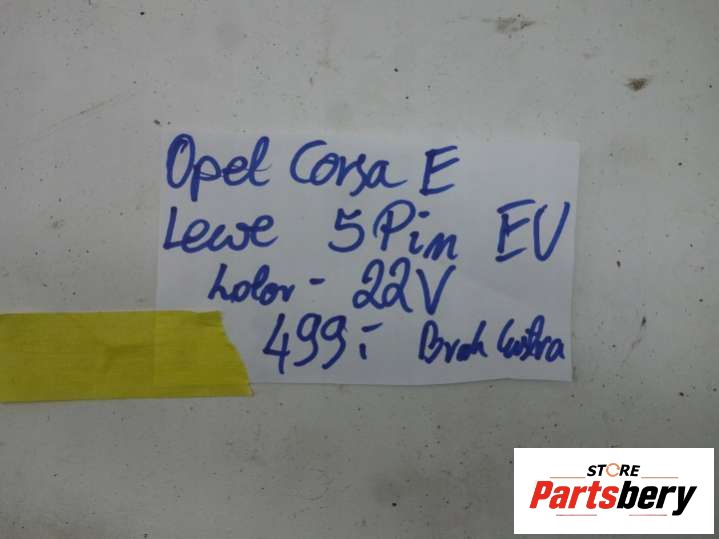 Opel Corsa E
Lewe 5 Pin EU
kolor - 22V
499,- Brak Lustra
STORE
Partsbery